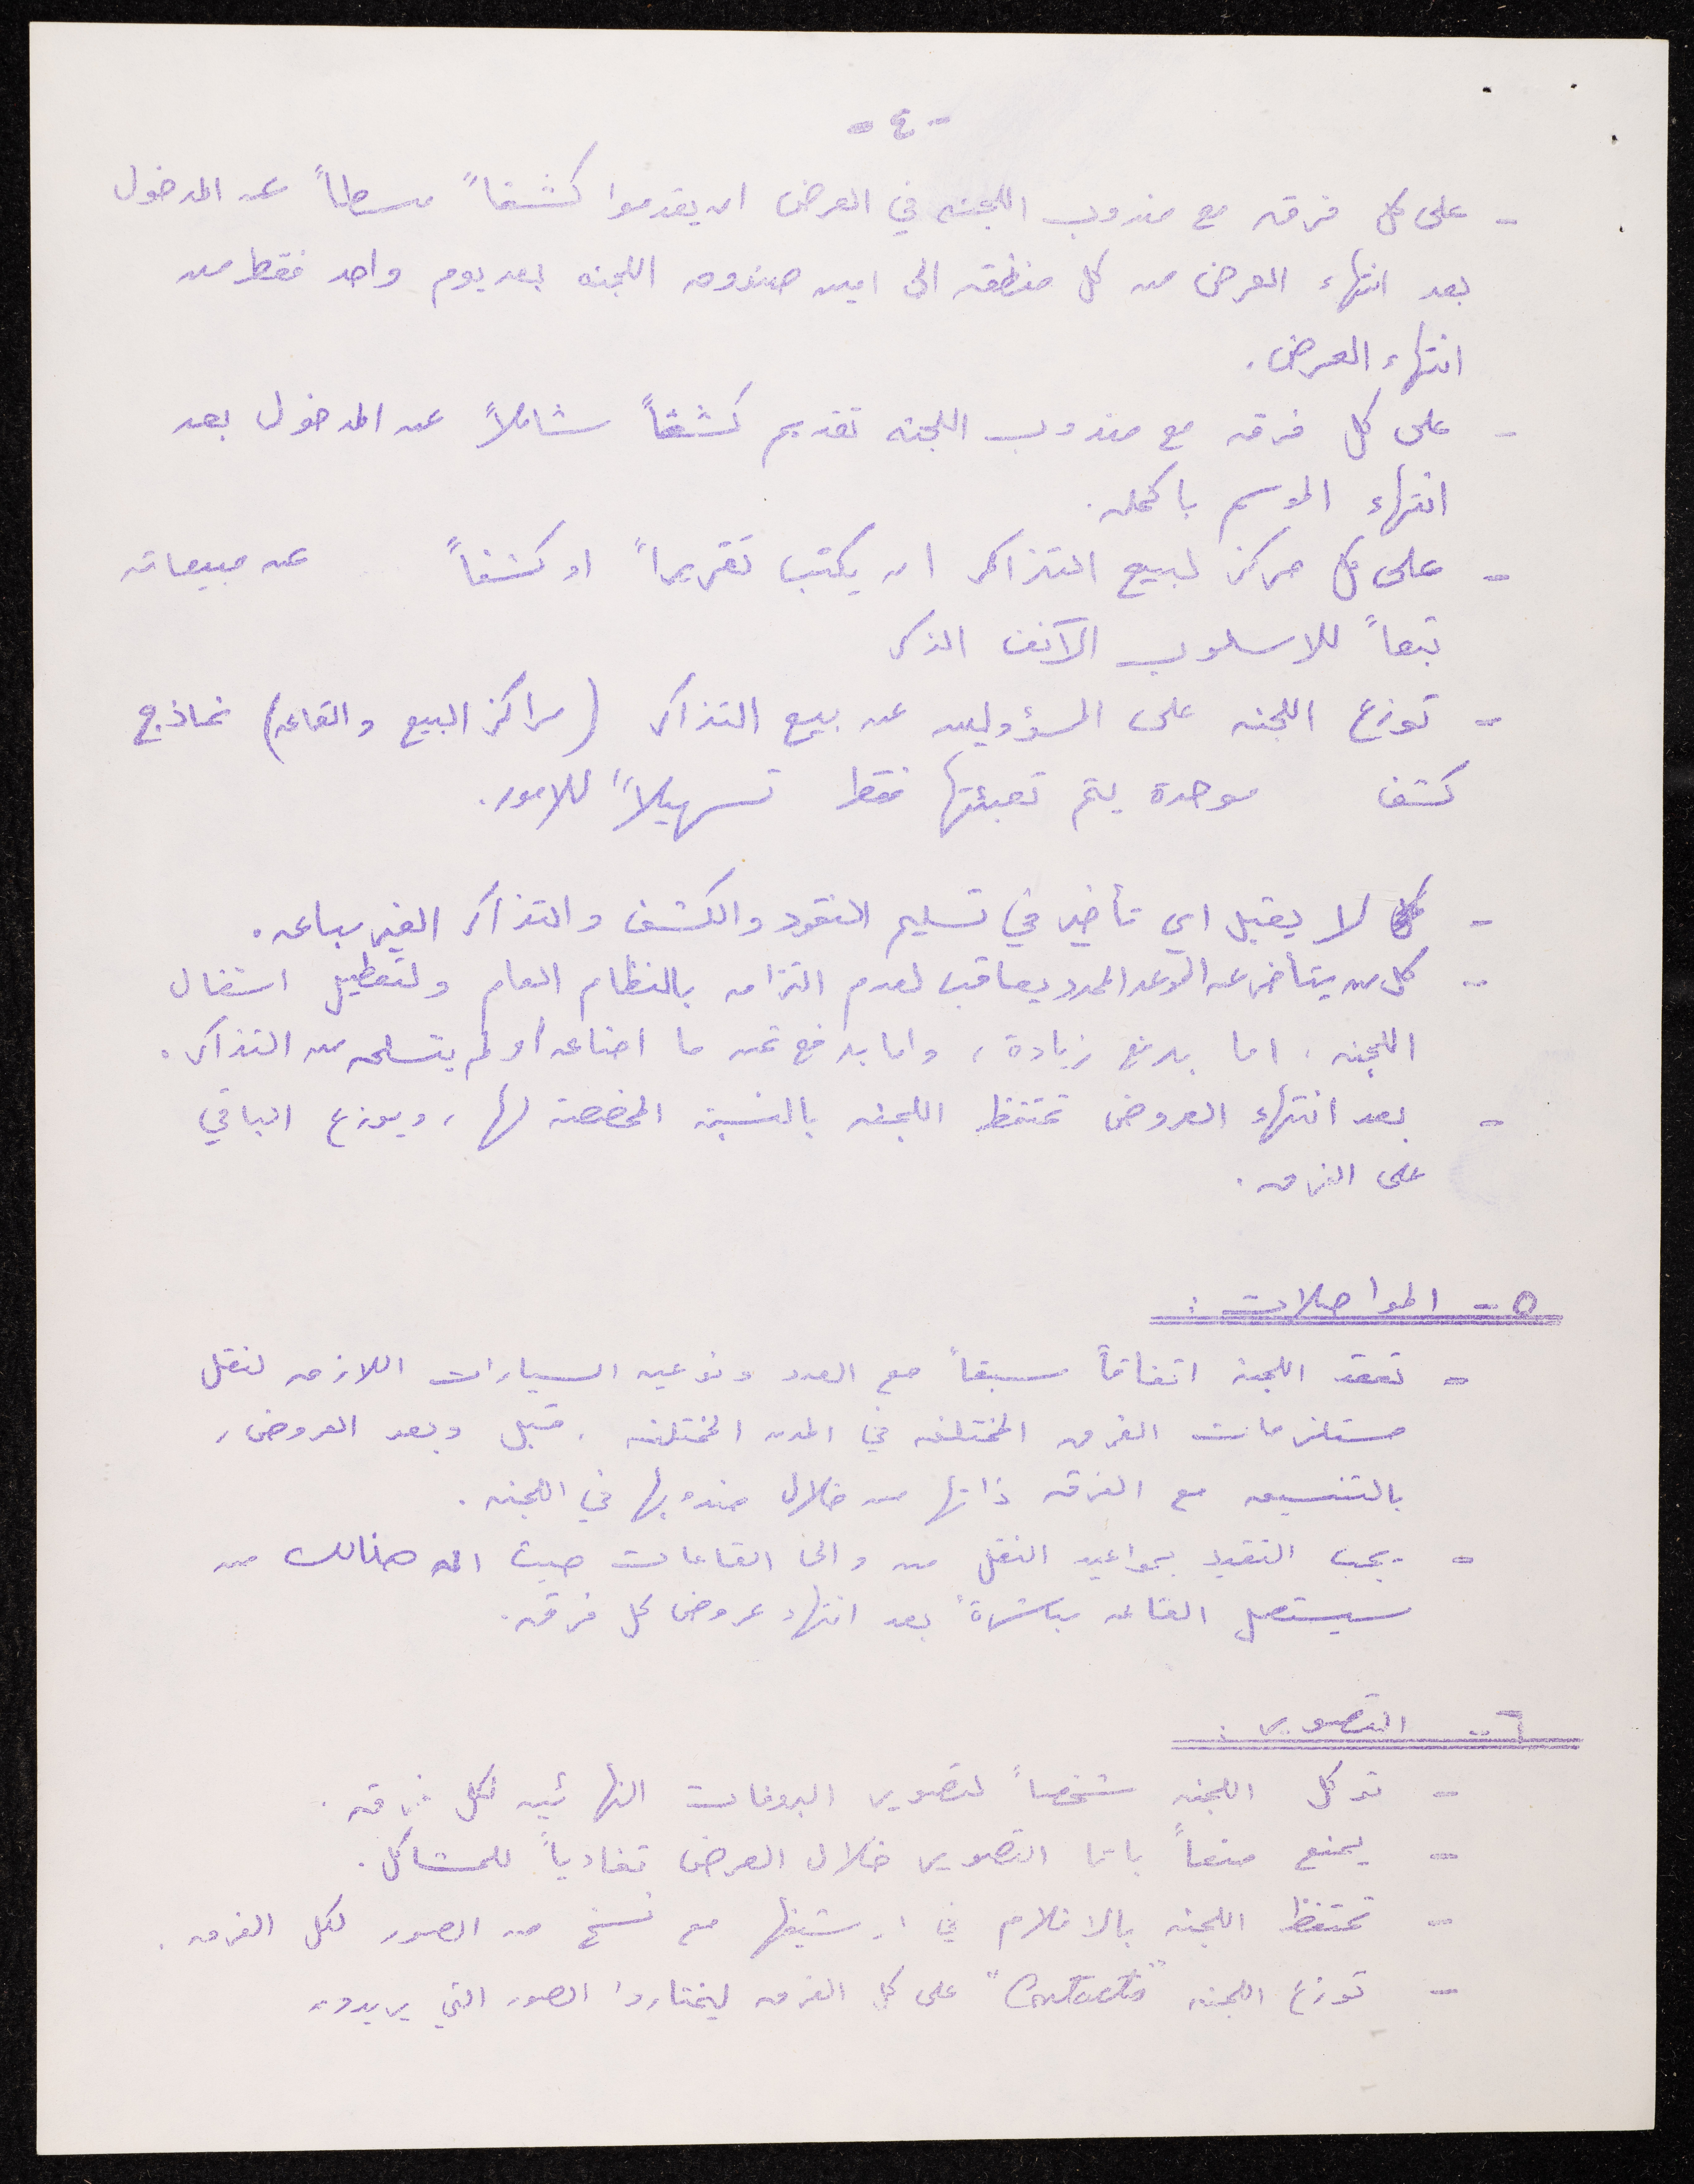 - ٤ -
- على كل فرقه مع مندوب اللجنه في العرض ان يقدموا كشفاً مبسطاً عن المدخول
بعد انتهاء العرض من كل منطقه الى امين صندوق اللجنه بعد يوم واحد فقط من
انتهاء العرض.
- على كل فرقه مع مندوب اللجنه تقديم كشفاً شاملاً عن المدخول بعد
انتهاء الموسم باكمله.
- على كل مركز لبيع التذاكر ان يكتب تقريراً او كشفاً عن مبيعاته
تبعاً للاسلوب الآنف الذكر
- توزع اللجنه على المسؤولين عن بيع التذاكر (مراكز البيع والقاعه) نماذج
كشف موحدة يتم تعبئتها فقط تسهيلاً للامور.
- لا يقبل اي تأخير في تسليم النقود والكشف والتذاكر الغير مباعه.
- كل من يتأخر عن الموعد المحدد يعاقب لعدم التزامه بالنظام العام ولتعطيل اشغال
اللجنه، اما بدفع زيادة، واما بدفع ثمن ما اضاعه او لم يتسلمه من التذاكر.
- بعد انتهاء العروض تحتفظ اللجنه بالنسبة المخصصة لها، ويوزع الباقي
على الفرق.
٥ - المواصلات :
- تعقد اللجنه اتفاقاً مسبقاً مع العدد ونوعيه السيارات اللازمه لنقل
مستلزمات الفرق المختلفه في المدن المختلفه، قبل وبعد العروض،
بالتنسيق مع الفرقه ذاتها من خلال مندوبها في اللجنه.
- يجب التقيد بمواعيد النقل من والى القاعات حيث ان هنالك من
سيستعمل القاعه مباشرةً بعد انتهاء عروض كل فرقه.
٦ - التصوير :
- توكل اللجنه شخصاً لتصوير البروفات النهائيه لكل فرقه.
- يمنع منعاً باتا التصوير خلال العرض تفادياً للمشاكل.
- تحتفظ اللجنه بالافلام في ارشيفها مع نسخ من الصور لكل الفرق.
- توزع اللجنه "Contacts" على كل الفرق ليختاروا الصور التي يريدون